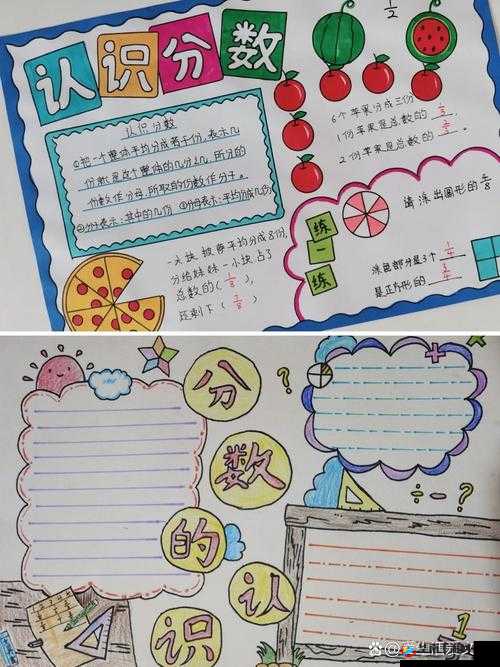 认识分数
1/2
认识分数
①把一个整体平均分成若干份,表示几
份就是这个整体的几分之几,所分的
份数作分母,所取的份数作分子。
②分子表示:其中的几份 ③分母表示:平均分成几份
6个苹果分成三份
1份苹果是总数的
2份苹果是总数的
一块披萨平均分成8份,
分给妹妹一小块占了
总数的(1/8),
还剩下(7/8)
练一练
请涂出圆形的
涂色部分是3个1/4
是正方形的3/4
分数的认识
?
+
÷-?
1